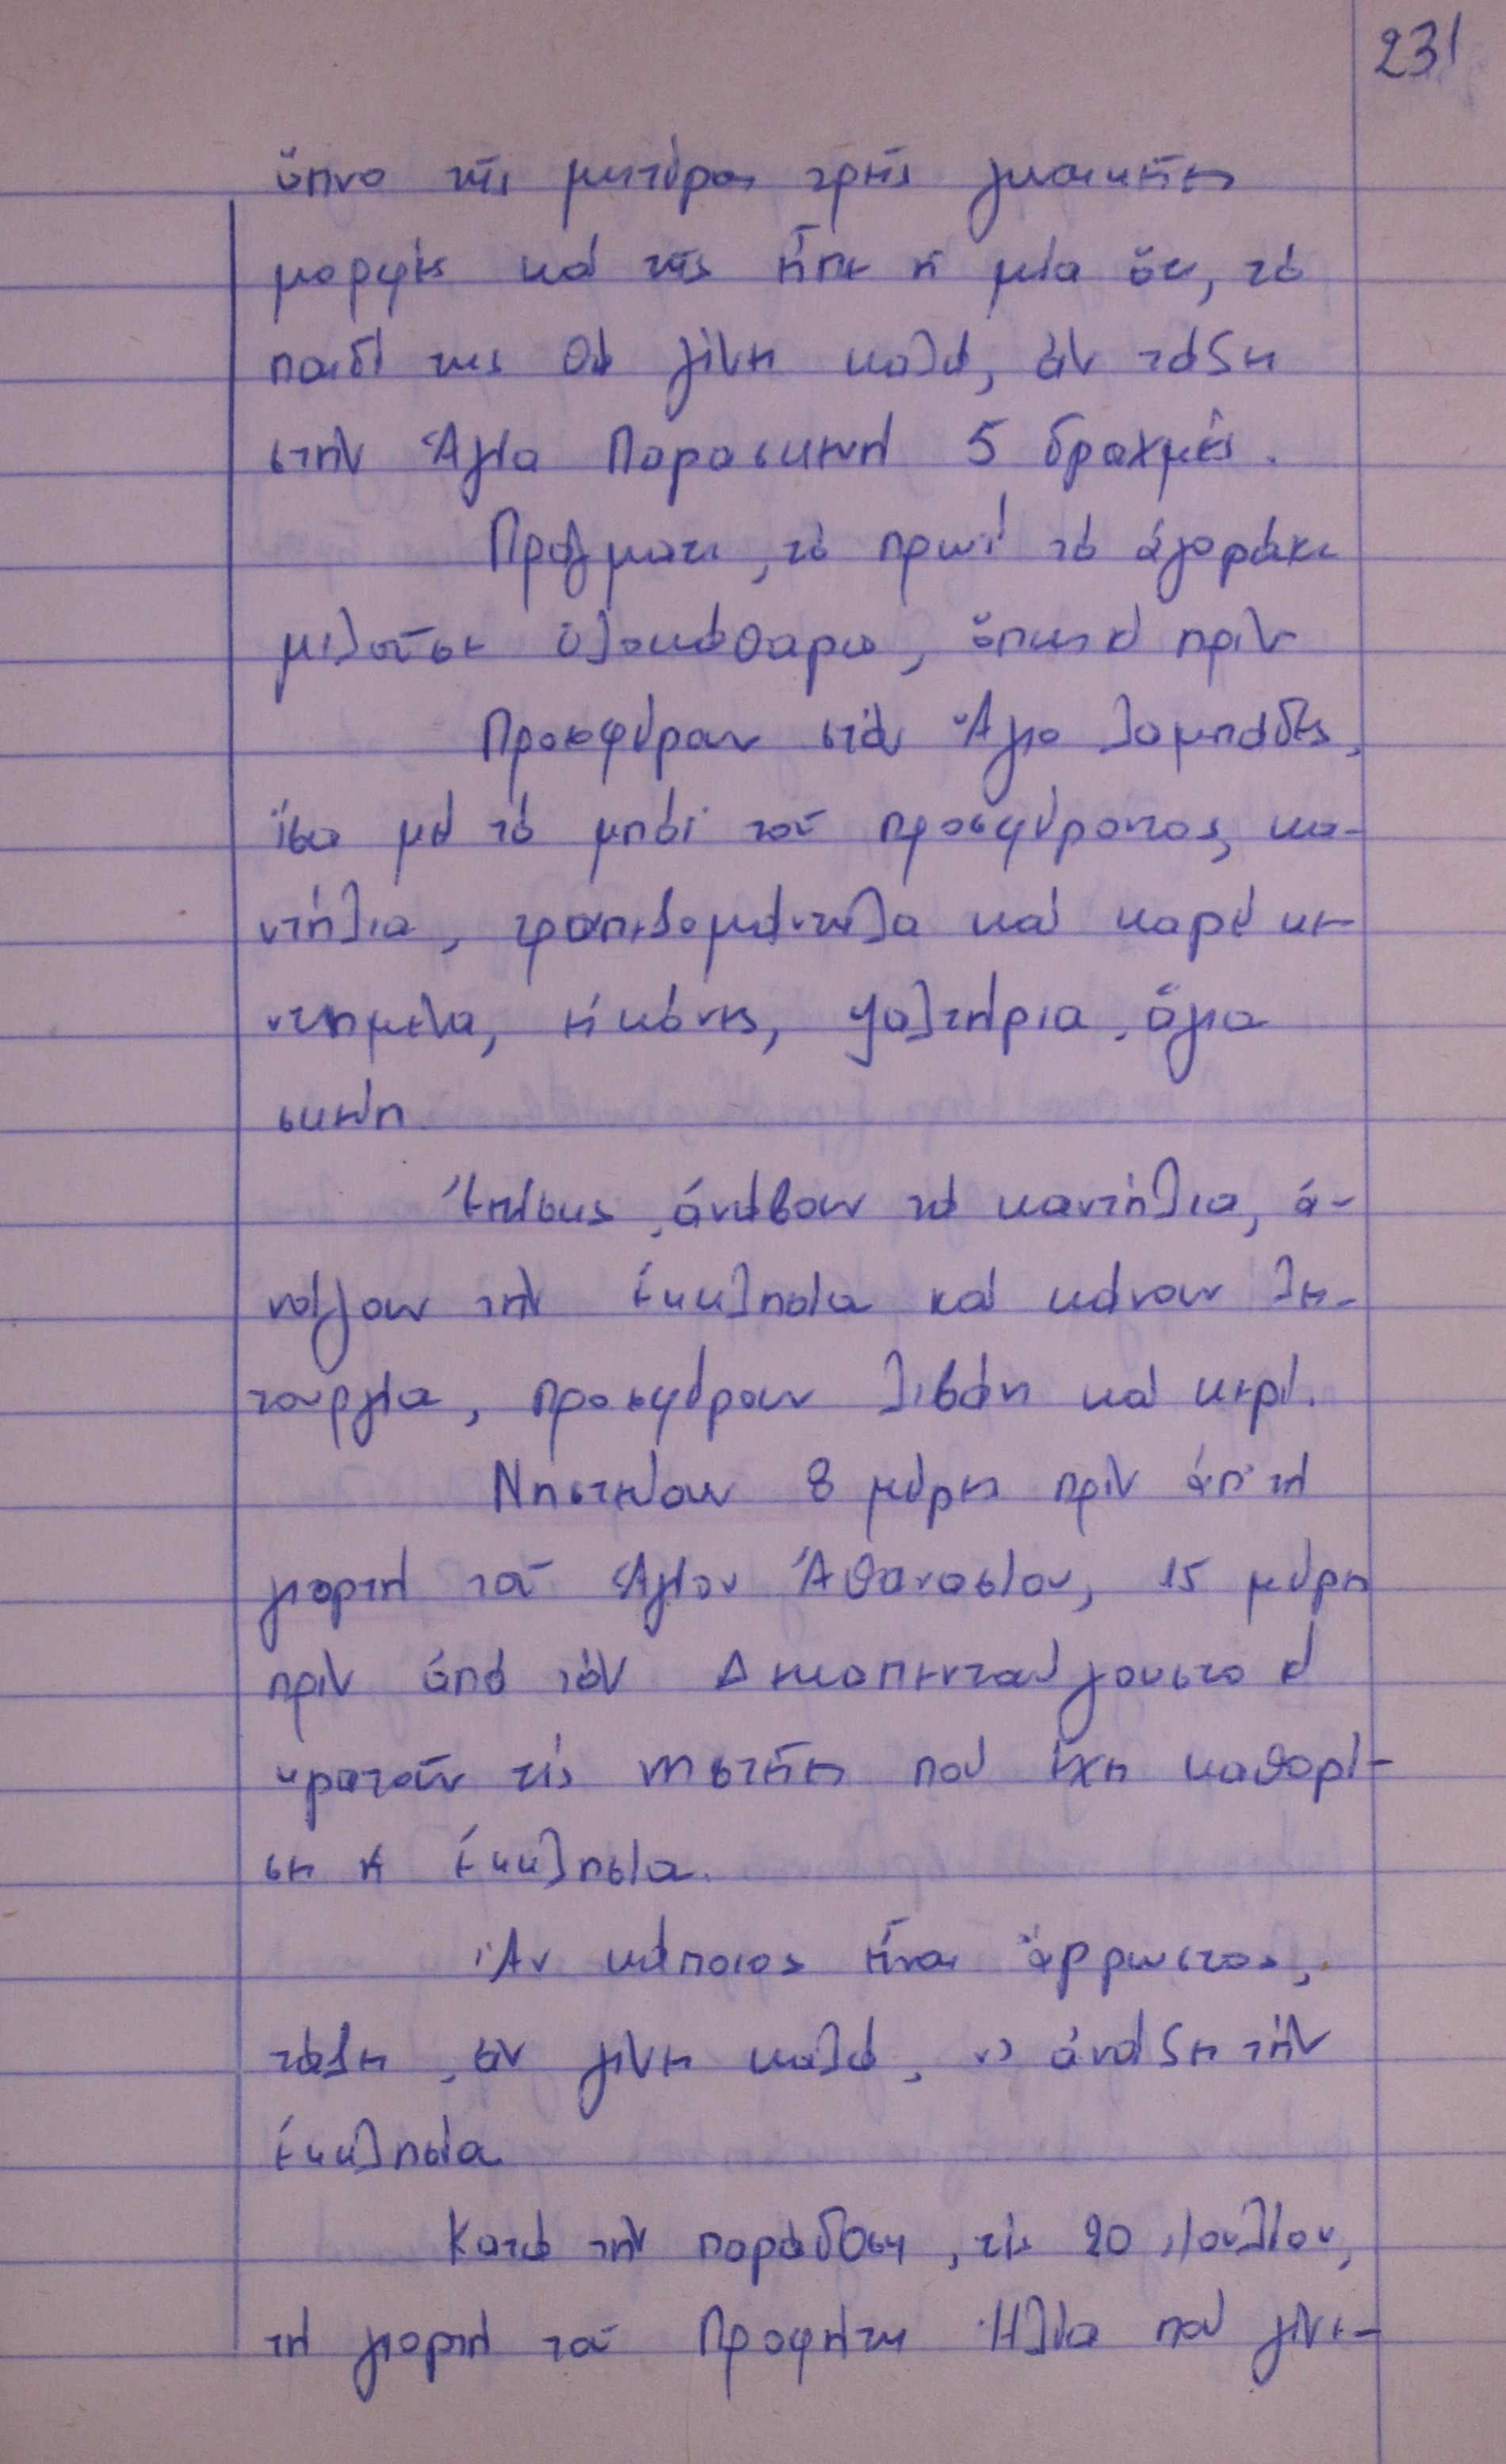 231
ὕπνο τῆς μητέρας τρεῖς γυναικεῖες
μορφές καί τῆς εἶπε ἡ μία ὅτι, τό
παιδί της θά γίνη καλά, ἄν τάξη
στήν Ἁγία Παρασκευή 5 δραχμές.
Πράγματι, τό πρωΐ τό ἀγοράκι
μιλοῦσε ὁλοκάθαρα, ὅπως κ' πρίν
Προσφέρουν στόν Ἅγιο λαμπάδες,
ἴσα μέ τό μπόϊ τοῦ προσφέροντος, κα-
ντήλια, τραπεζομάντηλα καί καρέ κε-
ντημένα, εἰκόνες, ψαλτήρια, ἅγια
σκεύη
Ἐπίσης, ἀνάβουν τά καντήλια, ἀ-
νοίγουν τήν ἐκκλησία καί κάνουν λει-
τουργία, προσφέρουν λιβάνι καί κερί.
Νηστεύουν 8 μέρες πρίν ἀπ' τή
γιορτή τοῦ Ἁγίου Ἀθανασίου, 15 μέρες
πρίν ἀπό τόν Δεκαπενταύγουστο κ'
κρατοῦν τίς νηστεῖες πού ἔχει καθορί-
σει ἡ ἐκκλησία.
Ἄν κάποιος εἶναι ἄρρωστος,
τάζει, ἄν γίνη καλά, ν' ἀνοίξη τήν
ἐκκλησία
Κατά τήν παράδοση, τίς 20 Ἰουλίου,
τή γιορτή τοῦ Προφήτη Ἠλία πού γίνε-